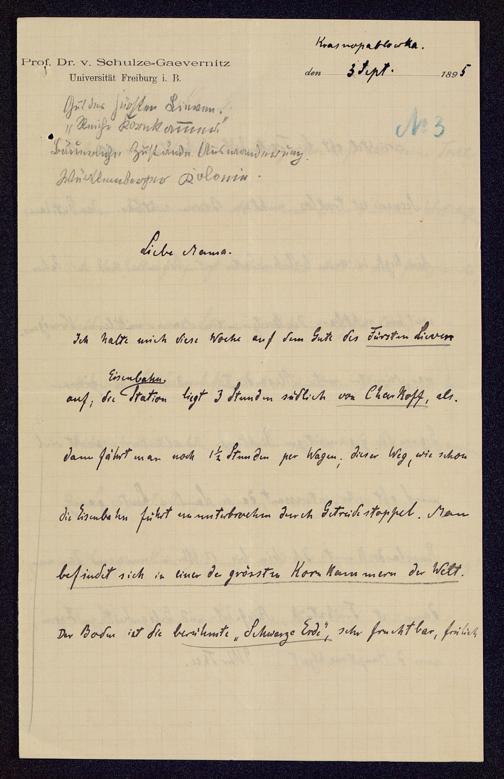 Krasnopablowka.
Prof. Dr. v. Schulze-Gaevernitz
Universität Freiburg i. B.
den 3 Sept. 1895
Gut des Fürsten Lieven.
"Reiche Kornkammer"
Bäuerliche Zustände Auswanderung.
Württemberger Kolonie.
No 3
Liebe Mama.
Ich halte mich diese Woche auf dem Gute des Fürsten Lieven
Eisenbahn
auf; die Station liegt 3 Stunden südlich von Charkoff, als.
dann fährt man noch 1½ Stunden per Wagen; dieser Weg, wie schon
die Eisenbahn führt ununterbrochen durch Getreidestoppel. Man
befindet sich in einer der grössten Kornkammern der Welt.
Der Boden ist die berühmte „Schwarze Erde", sehr fruchtbar, freilich